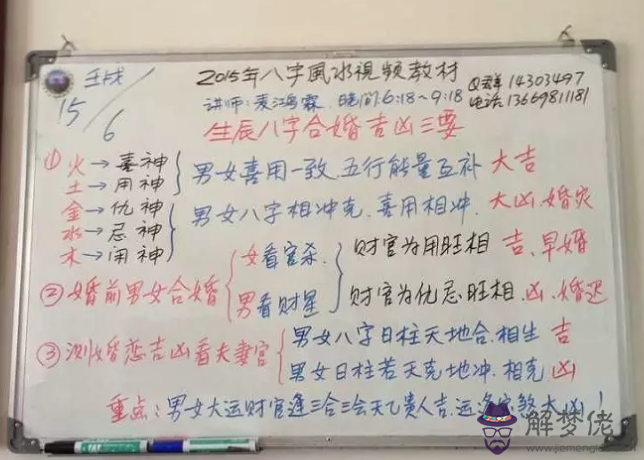 壬戌
15/6
2015年八字風水視频教材
Q群14303497
讲师:麦鸿霖 晚间6:18~9:18
电话:13669811181
生辰八字合婚吉凶三要
①火→喜神
土→用神
男女喜用一致.五行能量互补 大吉
金→仇神
水→忌神
木→闲神
男女八字相冲克.喜用相冲. 大凶.婚灾
②婚前男女合婚
女看官杀.
男看财星
财官为用旺相 吉.早婚
财官为仇忌旺相.凶.婚迟
③测婚恋吉凶看夫妻宫
男女八字日柱天地合.相生 吉
男女日柱若天克地冲.相克 凶
重点:男女大运财官逢三合三会天乙贵人吉.运逢煞大凶!
解梦佬